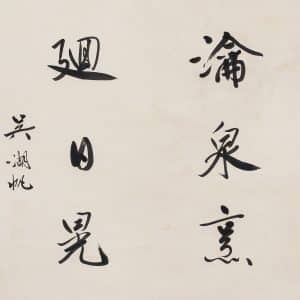 瀹泉烹
廻日晃
吳湖帆